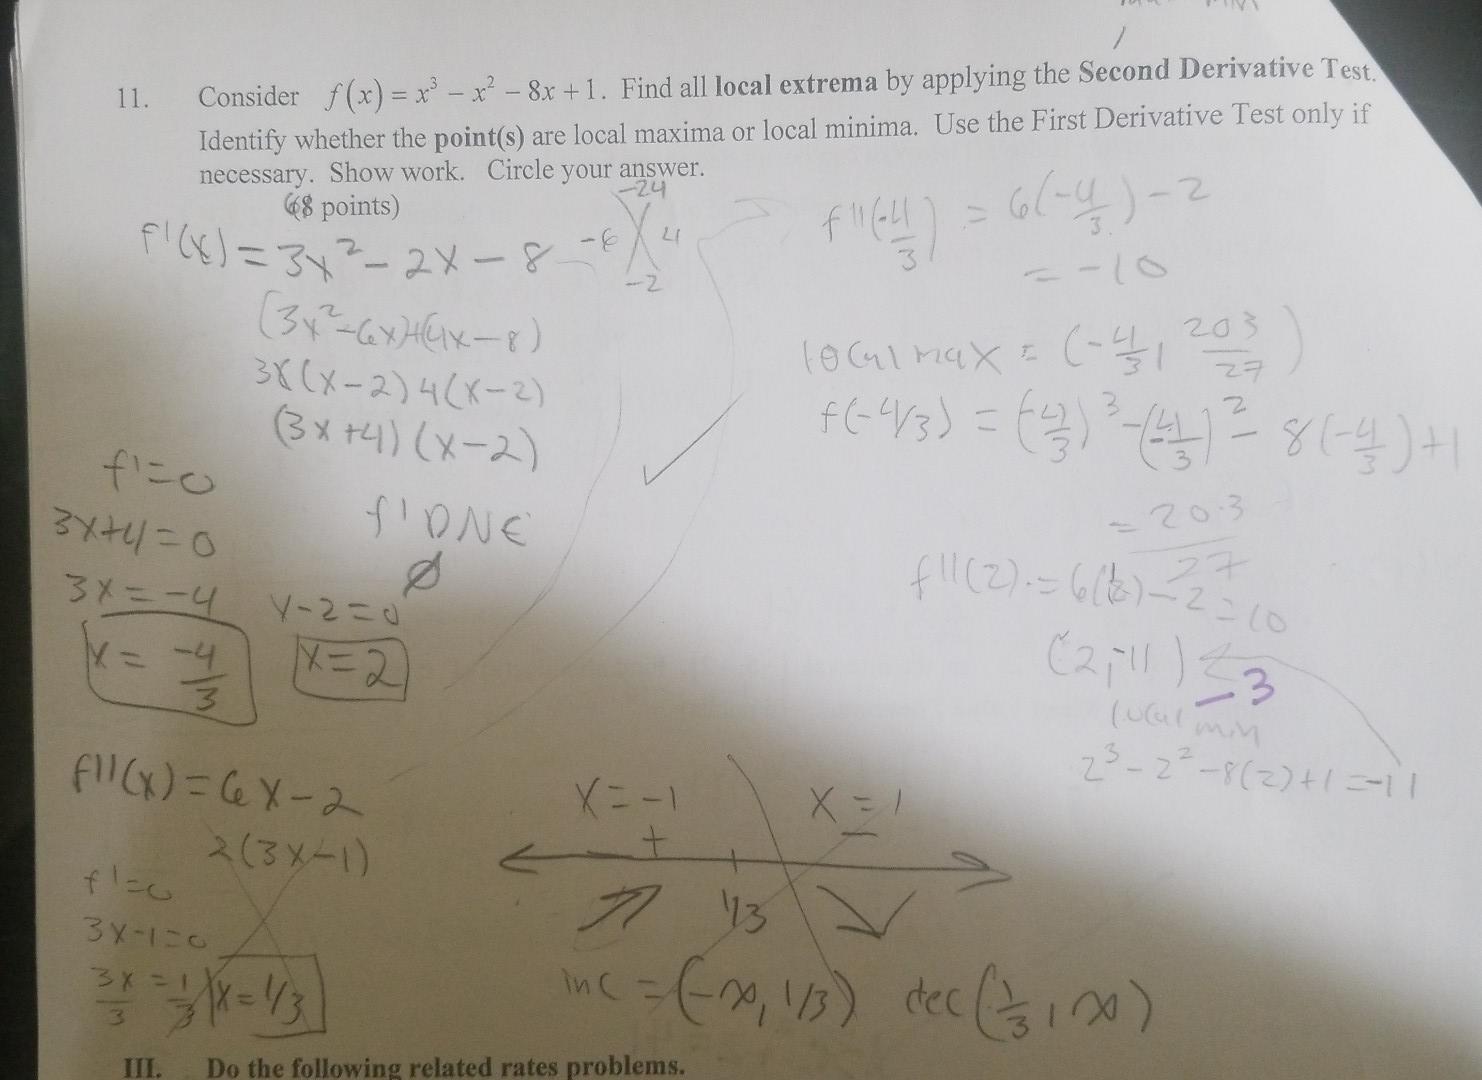 11. Consider f(x) = x³ − x² − 8x + 1. Find all local extrema by applying the Second Derivative Test.
Identify whether the point(s) are local maxima or local minima. Use the First Derivative Test only if
necessary. Show work. Circle your answer.
(8 points)
f'(x) = 3x² − 2x − 8
-24
-6 4
-2
(3x² − 6x)+(4x − 8)
3x(x − 2) 4(x − 2)
(3x + 4)(x − 2)
f' = 0
3x + 4 = 0
3x = −4
x = −4/3
f' DNE
∅
x − 2 = 0
x = 2
f''(x) = 6x − 2
2(3x − 1)
f' = 0
3x − 1 = 0
3x/3 = 1/3
x = 1/3
f''(-4/3) = 6(-4/3) − 2
= −10
local max = (-4/3, 203/27)
f(-4/3) = (-4/3)³ − (-4/3)² − 8(-4/3) + 1
= 203/27
f''(2) = 6(2) − 2 = 10
(2, -11)
-3
local min
2³ − 2² − 8(2) + 1 = −11
x = −1 x = 1
+ −
1/3
inc = (−∞, 1/3) dec (1/3, ∞)
III. Do the following related rates problems.